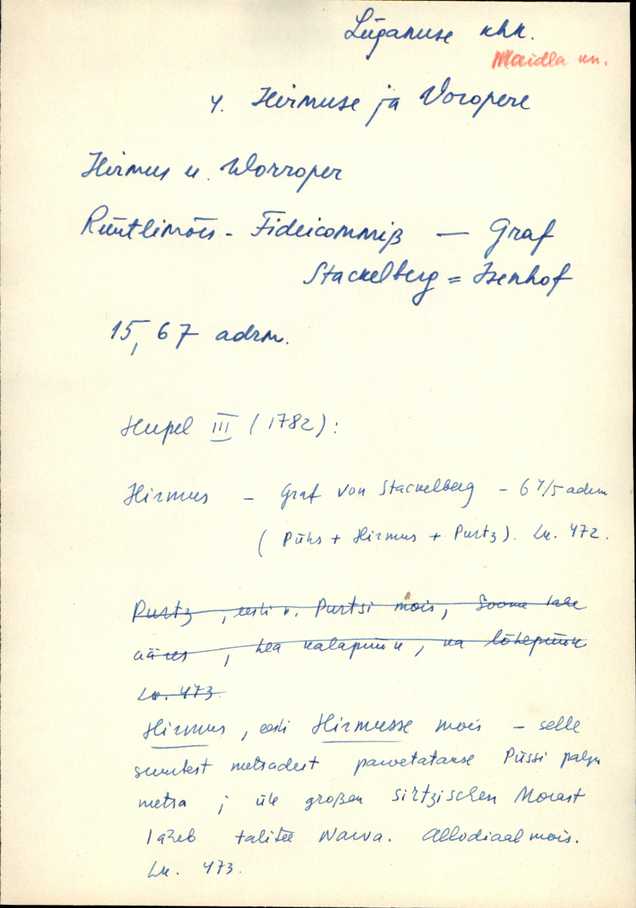 Lüganuse khk.
Maidla vn.
4. Hirmuse ja Voropere
Hirmus u. Worroper
Rüütlimõis - Fideicommiß — Graf
Stackelberg = Isenhof
15,67 adrm.
Hupel III (1782):
Hirmus - Graf von Stackelberg - 6 4/5 adrm
(Pühs + Hirmus + Purtz). Lk. 472.
Purtz, eesti k. Purtsi mois, Soome lahe
ääres, hea kalapüük, ka lõhepüük
Lk. 473.
Hirmus, eesti Hirmusse mois - selle
suurtest metsadest parvetatakse Püssi palju
metsa; üle großen Sirtzischen Morast
läheb talitee Narva. Allodiaalmois.
Lk. 473.